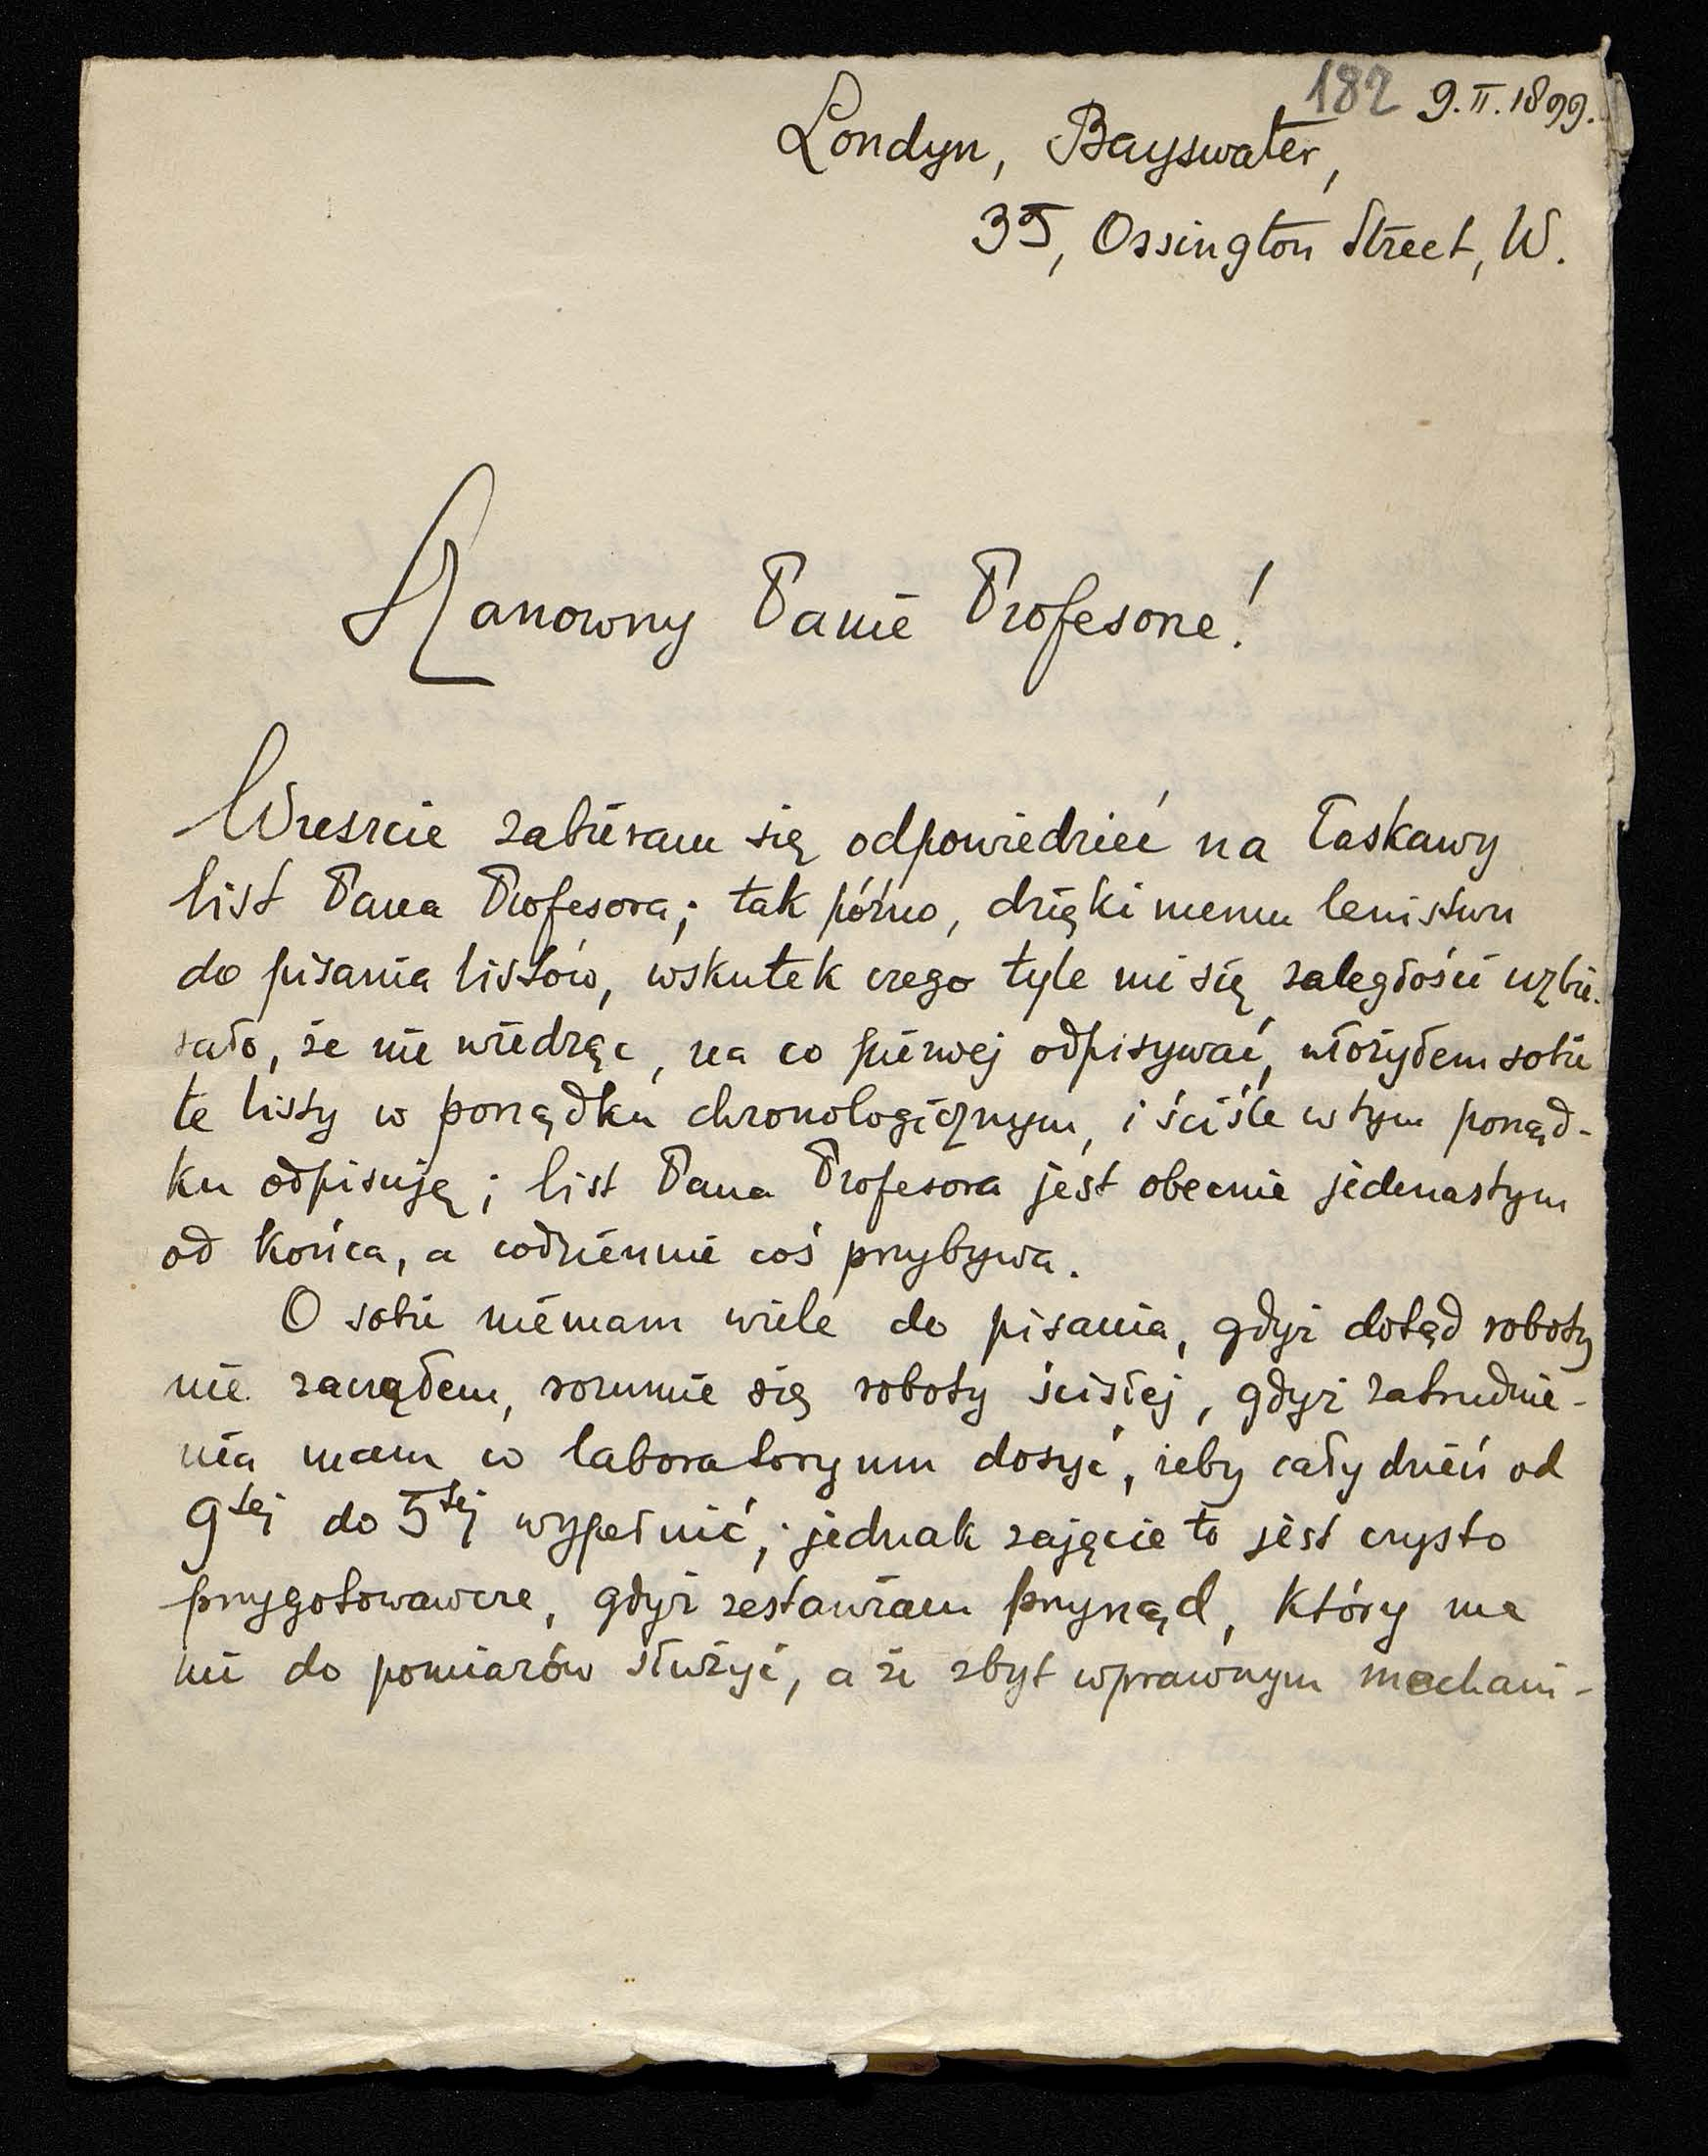 182 9.II.1899.
Londyn, Bayswater,
35, Ossington Street, W.
Szanowny Panie Profesorze!
Wreszcie zabieram się odpowiedzieć na łaskawy
list Pana Profesora; tak późno, dzięki memu lenistwu
do pisania listów, wskutek czego tyle mi się zaległości uzbie-
rało, że nie wiedząc, na co pierwej odpisywać, włożyłem sobie
te listy w porządku chronologicznym, i ściśle w tym porząd-
ku odpisuję; list Pana Profesora jest obecnie jedenastym
od końca, a codziennie coś przybywa.
O sobie niemam wiele do pisania, gdyż dotąd roboty
nie zacząłem, rozumie się roboty ścisłej, gdyż zatrudnie-
nia mam w laboratoryum dosyć, żeby cały dzień od
9tej do 5tej wypełnić; jednak zajęcie to jest czysto
przygotowawcze, gdyż zestawiam przyrząd, który ma
mi do pomiarów służyć, a że zbyt wprawnym mechani-